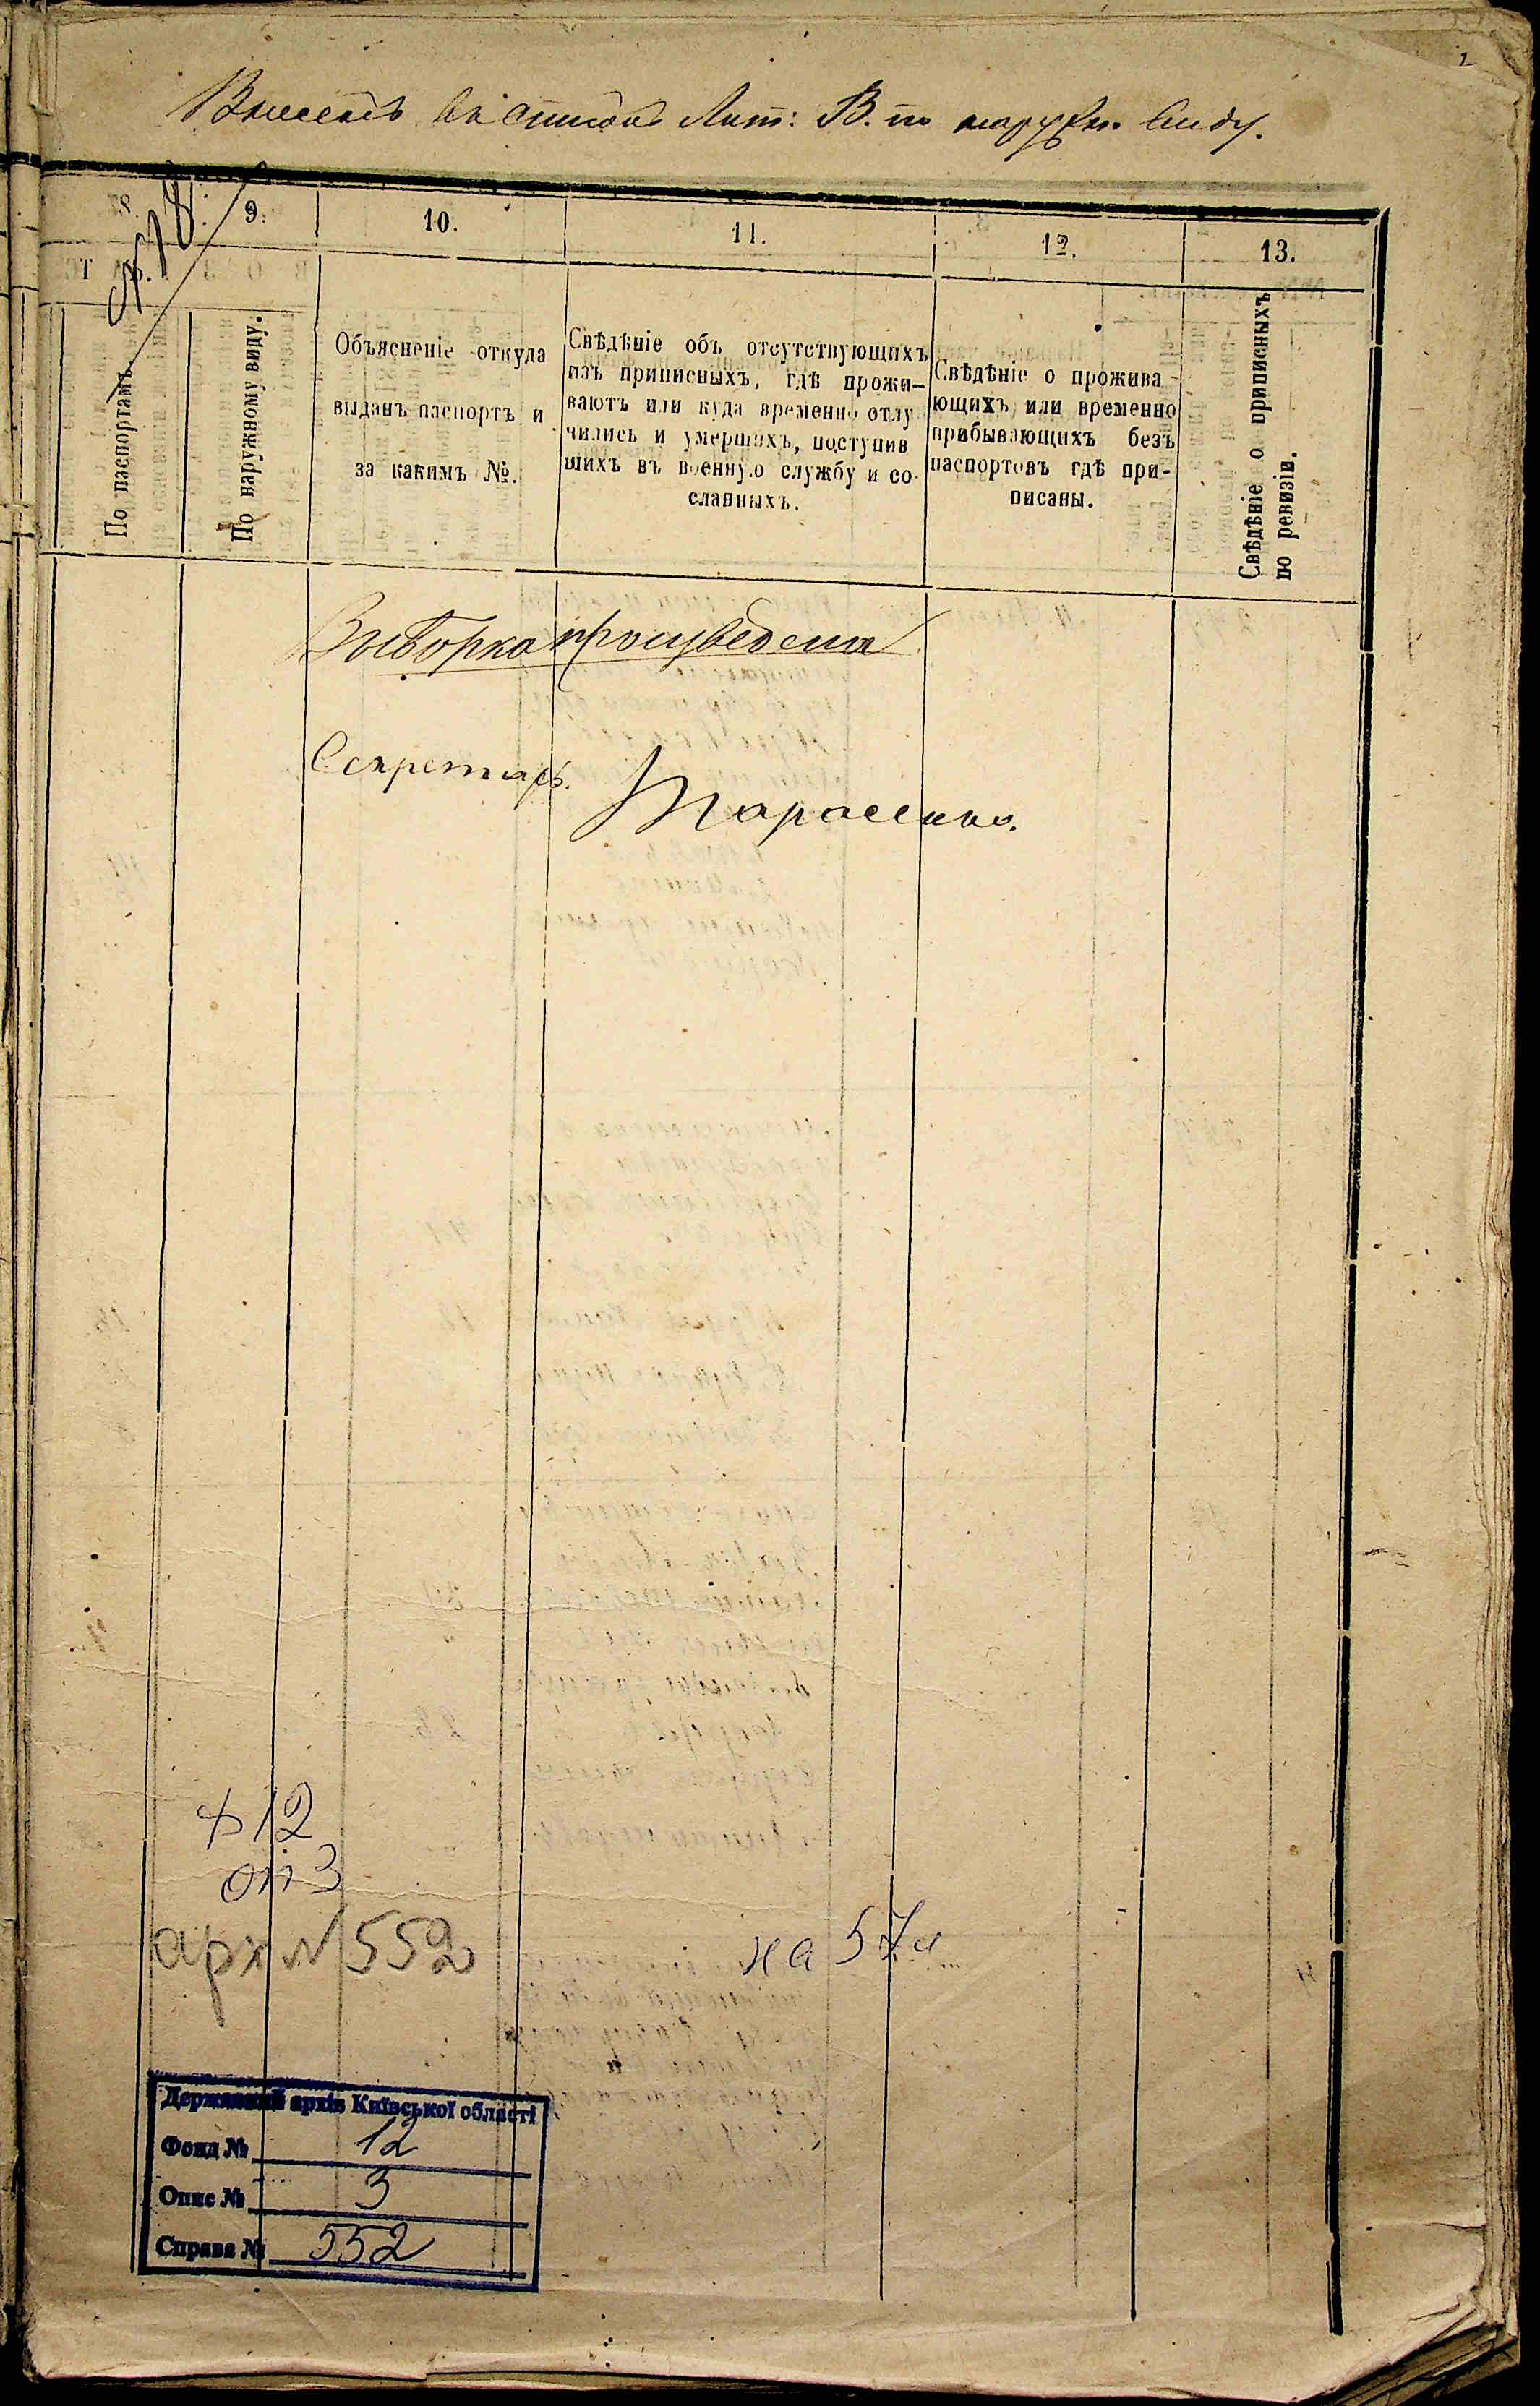 2
въ списокъ Лит: В. по наружн. виду.
8. 9. 10. 11. 12. 13.
№ 18.
По паспортамъ
По наружному виду.
Объясненіе откуда
выданъ паспортъ и
за какимъ №.
Свѣдѣніе объ отсутствующихъ
изъ приписныхъ, гдѣ прожи-
ваютъ или куда временно отлу
чились и умершихъ, поступив
шихъ въ военную службу и со-
сланныхъ.
Свѣдѣніе о прожива-
ющихъ или временно
прибывающихъ безъ
паспортовъ гдѣ при-
писаны.
Свѣдѣніе о приписныхъ
по ревизіи.
Выборка произведена
Секретарь
Тарасенко.
ф 12
оп 3
арх № 552
на 57 л
Державний архів Київської області
Фонд № 12
Опис № 3
Справа № 552